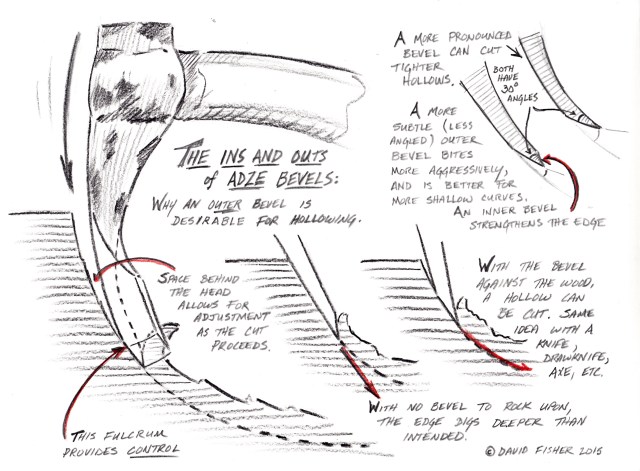 THE INS AND OUTS
of ADZE BEVELS:
WHY AN OUTER BEVEL IS
DESIRABLE FOR HOLLOWING.
A MORE PRONOUNCED
BEVEL CAN CUT
TIGHTER
HOLLOWS.
BOTH
HAVE
30°
ANGLES
A MORE
SUBTLE (LESS
ANGLED) OUTER
BEVEL BITES
MORE AGGRESSIVELY,
AND IS BETTER FOR
MORE SHALLOW CURVES.
AN INNER BEVEL
STRENGTHENS THE EDGE
SPACE BEHIND
THE HEAD
ALLOWS FOR
ADJUSTMENT
AS THE CUT
PROCEEDS.
WITH THE BEVEL
AGAINST THE WOOD,
A HOLLOW CAN
BE CUT. SAME
IDEA WITH A
KNIFE,
DRAWKNIFE,
AXE, ETC.
WITH NO BEVEL TO ROCK UPON,
THE EDGE DIGS DEEPER THAN
INTENDED.
THIS FULCRUM
PROVIDES CONTROL
© DAVID FISHER 2015